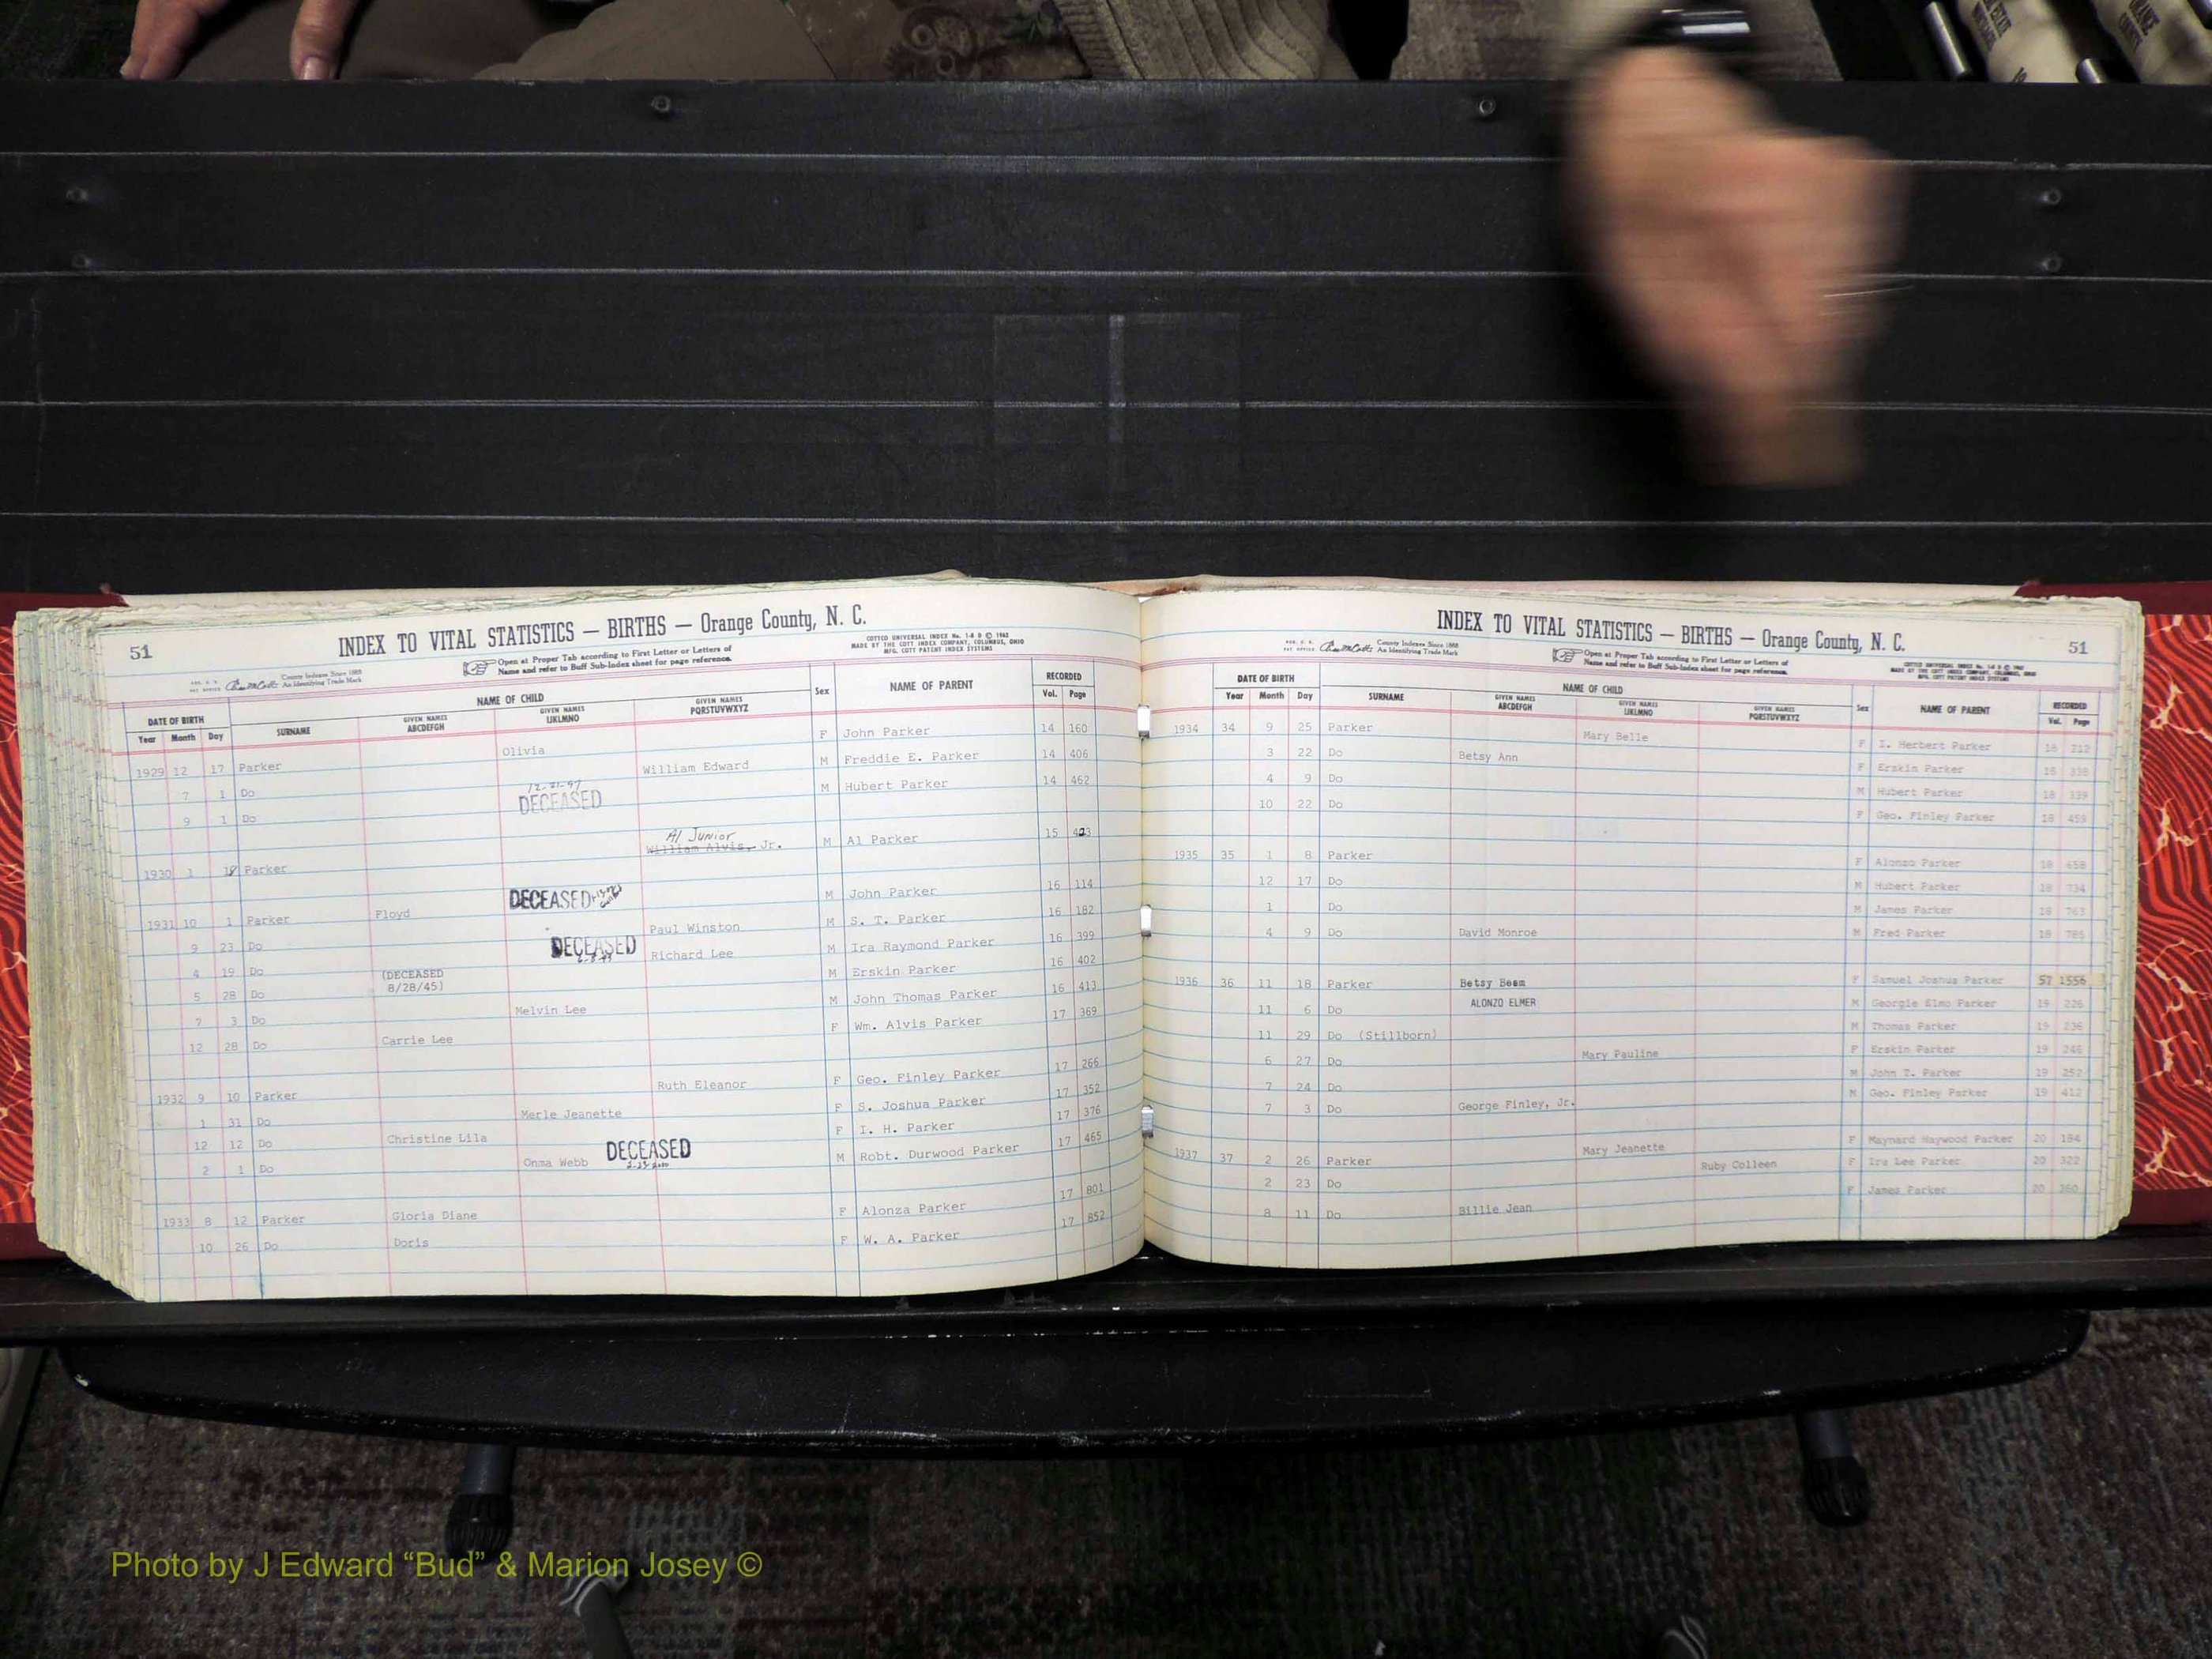 51
INDEX TO VITAL STATISTICS — BIRTHS — Orange County, N. C.
COTTCO UNIVERSAL INDEX No. 1-8 B © 1962
MADE BY THE COTT INDEX COMPANY, COLUMBUS, OHIO
MFG. COTT PATENT INDEX SYSTEMS
County Indexes Since 1888
An Identifying Trade Mark
Open at Proper Tab according to First Letter or Letters of
Name and refer to Buff Sub-Index sheet for page reference.
DATE OF BIRTH NAME OF CHILD Sex NAME OF PARENT RECORDED
Year Month Day SURNAME GIVEN NAMES ABCDEFGH GIVEN NAMES IJKLMNO GIVEN NAMES PQRSTUVWXYZ Vol. Page
1929 12 17 Parker Olivia F John Parker 14 160
7 1 Do William Edward M Freddie E. Parker 14 406
9 1 Do DECEASED M Hubert Parker 14 462
Al Junior
1930 1 Parker William Alvis, Jr. M Al Parker 15
1931 10 1 Parker Floyd DECEASED M John Parker 16 114
9 23 Do Paul Winston M S. T. Parker 16 182
4 19 Do DECEASED Richard Lee M Ira Raymond Parker 16 399
5 28 Do (DECEASED 8/28/45) M Erskin Parker 16 402
7 3 Do Melvin Lee M John Thomas Parker 16 413
12 28 Do Carrie Lee F Wm. Alvis Parker 17 369
1932 9 10 Parker Ruth Eleanor F Geo. Finley Parker 17 266
1 31 Do Merle Jeanette F S. Joshua Parker 17 352
12 12 Do Christine Lila F I. H. Parker 17 376
2 1 Do Onma Webb DECEASED M Robt. Durwood Parker 17 465
1933 8 12 Parker Gloria Diane F Alonza Parker 17 801
10 26 Do Doris F W. A. Parker 17 852
INDEX TO VITAL STATISTICS — BIRTHS — Orange County, N. C.
51
County Indexes Since 1888
An Identifying Trade Mark
Open at Proper Tab according to First Letter or Letters of
Name and refer to Buff Sub-Index sheet for page reference.
DATE OF BIRTH NAME OF CHILD Sex NAME OF PARENT RECORDED
Year Month Day SURNAME GIVEN NAMES ABCDEFGH GIVEN NAMES IJKLMNO GIVEN NAMES PQRSTUVWXYZ Vol. Page
1934 34 9 25 Parker Mary Belle F I. Herbert Parker 18 212
3 22 Do Betsy Ann F Erskin Parker 18
4 9 Do M Hubert Parker 18 339
10 22 Do F Geo. Finley Parker 18 459
1935 35 1 8 Parker F Alonzo Parker 18 658
12 17 Do M Hubert Parker 18 734
1 Do M James Parker 18 763
4 9 Do David Monroe M Fred Parker 18 785
1936 36 11 18 Parker Betsy Beam F Samuel Joshua Parker 57 1556
11 6 Do ALONZO ELMER M Georgie Elmo Parker 19 226
11 29 Do (Stillborn) M Thomas Parker 19 236
6 27 Do Mary Pauline F Erskin Parker 19 246
7 24 Do M John T. Parker 19 252
7 3 Do George Finley, Jr. M Geo. Finley Parker 19 412
1937 37 2 26 Parker Mary Jeanette F Maynard Haywood Parker 20 184
2 23 Do Ruby Colleen F Ira Lee Parker 20 322
8 11 Do Billie Jean F James Parker 20 360
Photo by J Edward “Bud” & Marion Josey ©